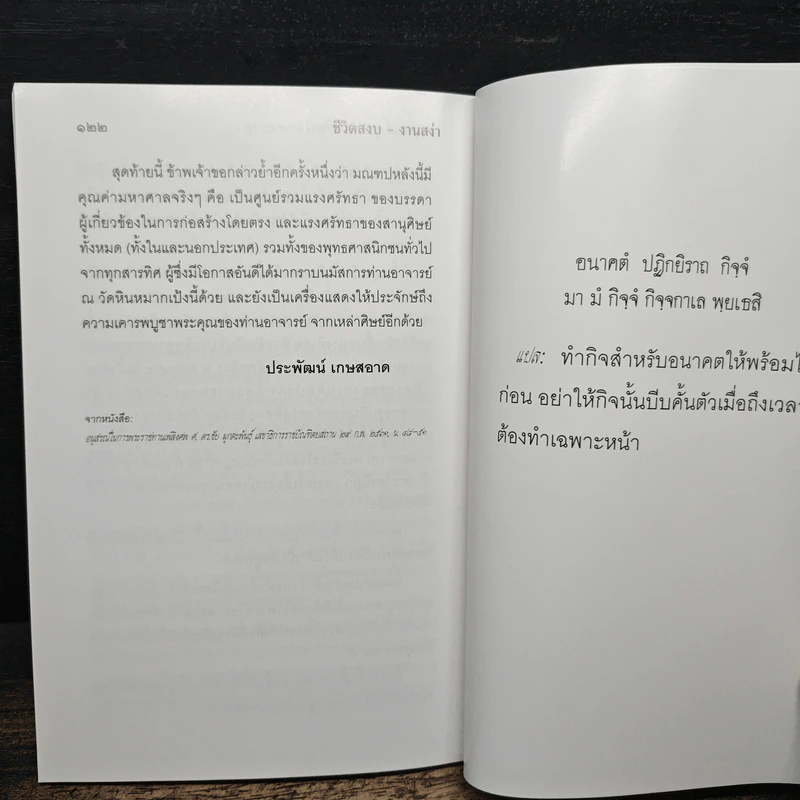 ๑๒๒ ชีวิตสงบ - งานสง่า
สุดท้ายนี้ ข้าพเจ้าขอกล่าวย้ำอีกครั้งหนึ่งว่า มณฑปหลังนี้มี
คุณค่ามหาศาลจริงๆ คือ เป็นศูนย์รวมแรงศรัทธา ของบรรดา
ผู้เกี่ยวข้องในการก่อสร้างโดยตรง และแรงศรัทธาของสานุศิษย์
ทั้งหมด (ทั้งในและนอกประเทศ) รวมทั้งของพุทธศาสนิกชนทั่วไป
จากทุกสารทิศ ผู้ซึ่งมีโอกาสอันดีได้มากราบนมัสการท่านอาจารย์
ณ วัดหินหมากเป้งนี้ด้วย และยังเป็นเครื่องแสดงให้ประจักษ์ถึง
ความเคารพบูชาพระคุณของท่านอาจารย์ จากเหล่าศิษย์อีกด้วย
ประพัฒน์ เกษสอาด
จากหนังสือ:
อนุสรณ์ในการพระราชทานเพลิงศพ ศ. ดร.ชัย มุกตะพันธุ์ เลขาธิการราชบัณฑิตยสถาน ๒๙ ก.พ.
อนาคตํ ปฏิกยิราถ กิจฺจํ
มา มํ กิจฺจํ กิจฺจกาเล พฺยเธสิ
แปล: ทำกิจสำหรับอนาคตให้พร้อมไ
ก่อน อย่าให้กิจนั้นบีบคั้นตัวเมื่อถึงเวลา
ต้องทำเฉพาะหน้า